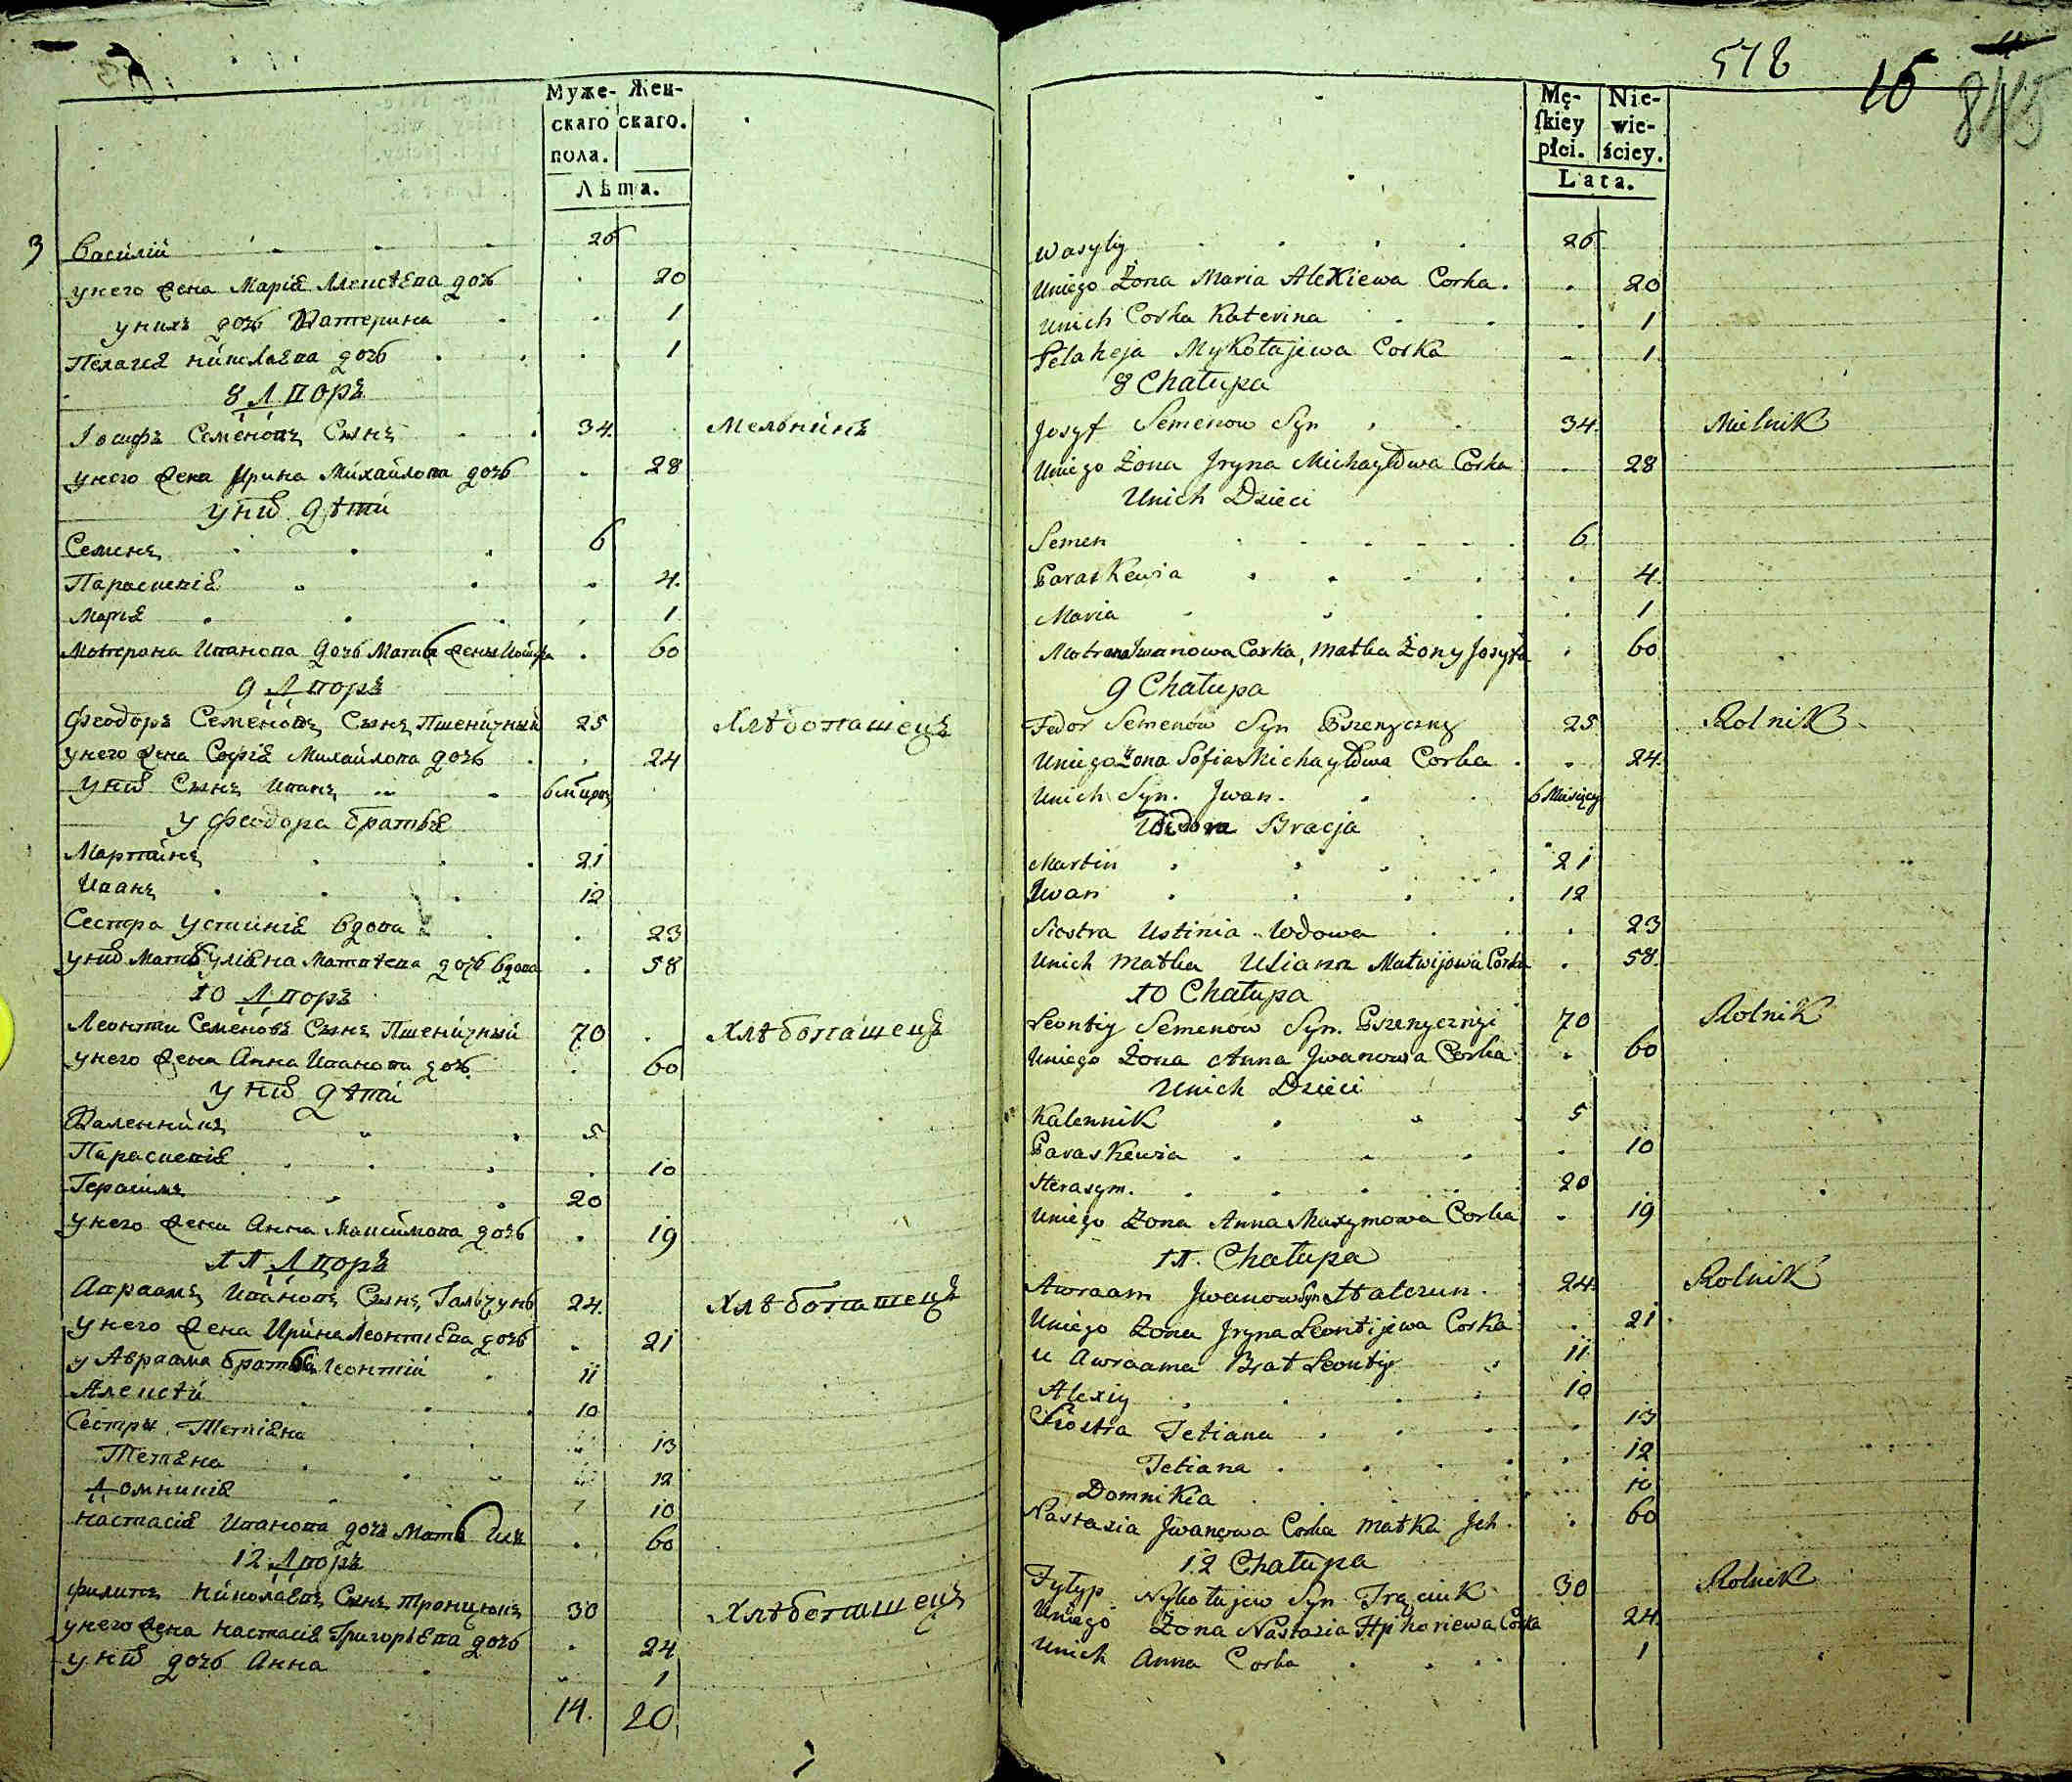 Муже- Жен-
скаго скаго.
пола.
Лѣта.
3 Василій 26
у него жена Марія Алексѣева дочь 20
у нихъ дочь Катерина 1
Пелагея Николаева дочь 1
8 Дворъ
Іосифъ Семеновъ Сынъ 34. Мельникъ
у него жена Ирина Михайлова дочь 28
у нихъ дѣти
Семенъ 6
Параскевія 4.
Марія 1
Мотрона Иванова дочь Мать жены Иосифа 60
9 Дворъ
Феодоръ Семеновъ Сынъ Пшеничный 25 Хлѣбопашецъ
у него жена Софія Михайлова дочь 24
у нихъ Сынъ Иванъ
у Феодора братья
Мартинъ 21
Иванъ 12
Сестра Устинія вдова 23
у нихъ Мать Уліяна Матвѣева дочь вдова 58
10 Дворъ
Леонтий Семеновъ Сынъ Пшеничный 70 Хлѣбопашецъ
у него жена Анна Иванова дочь 60
у нихъ дѣти
Каленникъ 5
Параскевія 10
Герасимъ 20
у него жена Анна Максимова дочь 19
11 Дворъ
Авраамъ Ивановъ Сынъ Гальчунъ 24. Хлѣбопашецъ
у него жена Ирина Леонтіева дочь 21
у Авраама братья Леонтій 11
Алексѣй 10
Сестры Тетіяна 13
Тетяна 12
Домникія 10
Настасія Иванова дочь Мать ихъ 60
12 Дворъ
Филипъ Николаевъ Сынъ Тронцюкъ 30 Хлѣбопашецъ
у него жена Настасія Григорьева дочь 24
у нихъ дочь Анна 1
14. 20.
578 16 845
Mę- Nie-
skiey wie-
płci. ściey.
Lata.
Wasyly 26
Uniego Żona Maria Alexiewa Corka. 20
Unich Corka Katerina 1
Pelaheja Mykołajewa Corka 1
8 Chałupa
Josyf Semenow Syn 34. Mielnik
Uniego Żona Jryna Michayłowa Corka 28
Unich Dzieci
Semen 6
Paraskewia 4.
Maria 1
Motrona Jwanowa Corka, matka Żony Josyfa 60
9 Chałupa
Fedor Semenów Syn Pszenyczny 25 Rolnik
Uniego Żona Sofia Michayłowa Corka 24.
Unich Syn. Jwan. 6 Miesięcy
Bracja
Martin 21
Jwan 12
Siostra Ustinia Wdowa 23
Unich Matka Uliana Matwijowa Corka 58.
10 Chałupa
Leontiy Semenow Syn. Pszenycznyi 70 Rolnik
Uniego Żona Anna Jwanowa Corka 60
Unich Dzieci
Kalennik 5
Paraskewia 10
Herasym. 20
Uniego Żona Anna Maxymowa Corka 19
11. Chałupa
Awraam Jwanow Syn Halczun. 24. Rolnik
Uniego Żona Jryna Leontijewa Corka 21
u Awraama Brat Leontiy 11
Alexiy 10
Siostra Tetiana 13
Tetiana 12
Domnikia 10
Nastazia Jwanowa Corka matka Jch 60
12 Chałupa
Fylyp Nykołajew Syn Trąciuk 30 Rolnik
Uniego Żona Nastazia Hrihoriewa Corka 24.
Unich Anna Corka 1